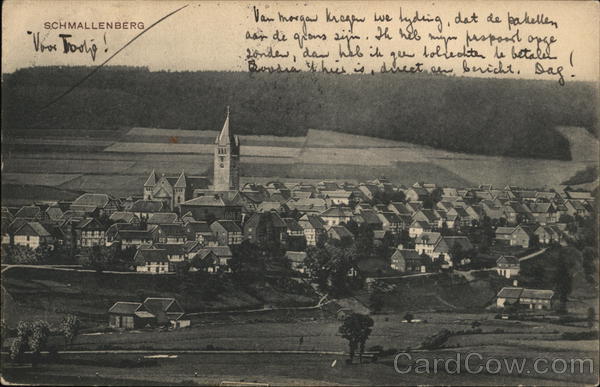 SCHMALLENBERG
"Voor Tootje!
Van morgen kregen we tyding, dat de paketten
aan de grens zijn. Ik heb mijn paspoort opge
zonden, dan heb ik geen tolrechten te betalen
't hier is, direct een bericht. Dag!
CardCow.com